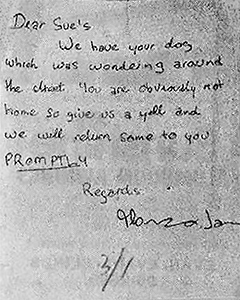 Dear Sue's
We have your dog
which was wondering around
the You are obviously not
home so give us a yell and
we will return same to you
PROMPTLY
Regards
3/1